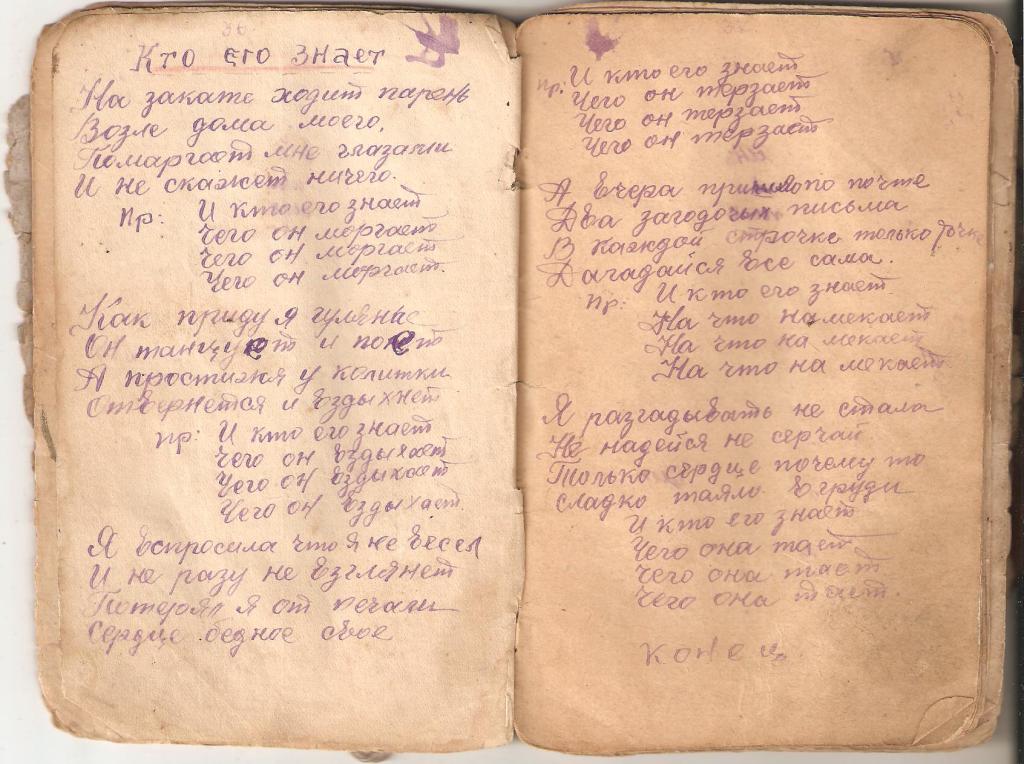 36
Кто его знает
На закате ходит парень
Возле дома моего,
Помаргает мне глазами
И не скажет ничего.
Пр: И кто его знает
Чего он моргает
Чего он моргает
Чего он моргает.
Как приду я гулянье
Он танцует и поет
А простижя у колитки
Отвернется и вздыхнет
пр: И кто его знает
Чего он вздыхает
Чего он вздыхает
Чего он вздыхает.
Я вспросила что я не весел
И не разу не взглянет
Потерял я от печали
Сердце бедное свое
Пр. И кто его знает
Чего он терзает
Чего он терзает
Чего он терзает
А вчера по почте
Два загодочых письма
В каждой строчке только точке
Дагадайся все сама.
Пр: И кто его знает
На что намекает
На что на мекает
На что на мекает
Я разгадывать не стала
Не надейся не серчай
Только сердце почему то
сладко таяло в груди
И кто его знает
Чего она тает
Чего она тает
Чего она тает.
конец.